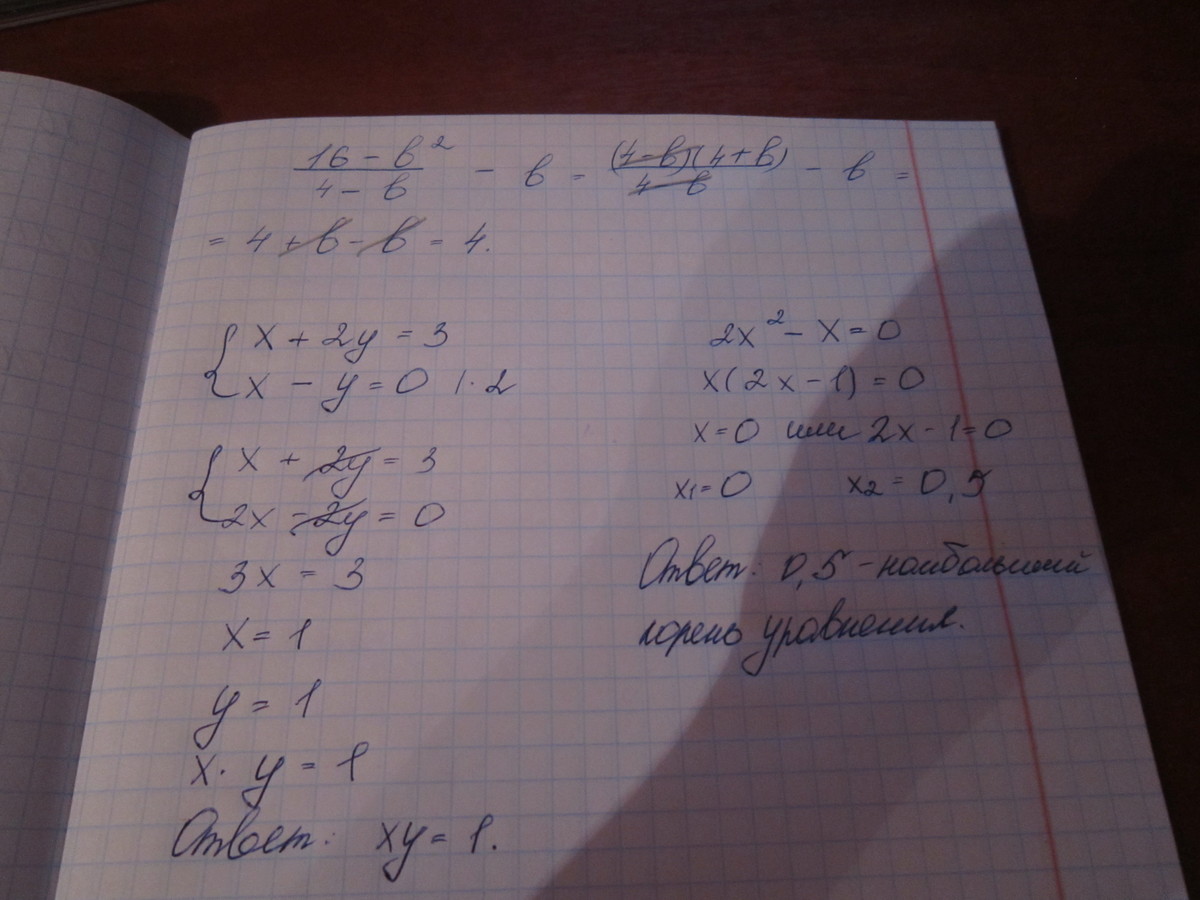 16 - в² / 4 - в - в = (4-в)(4+в) / 4-в - в =
= 4 + в - в = 4.
{ x + 2y = 3
x - y = 0 | · 2
{ x + 2y = 3
2x - 2y = 0
3x = 3
x = 1
y = 1
x · y = 1
Ответ: xy = 1.
2x² - x = 0
x(2x - 1) = 0
x = 0 или 2x - 1 = 0
x1 = 0 x2 = 0,5
Ответ: 0,5 - наибольший
корень уравнения.